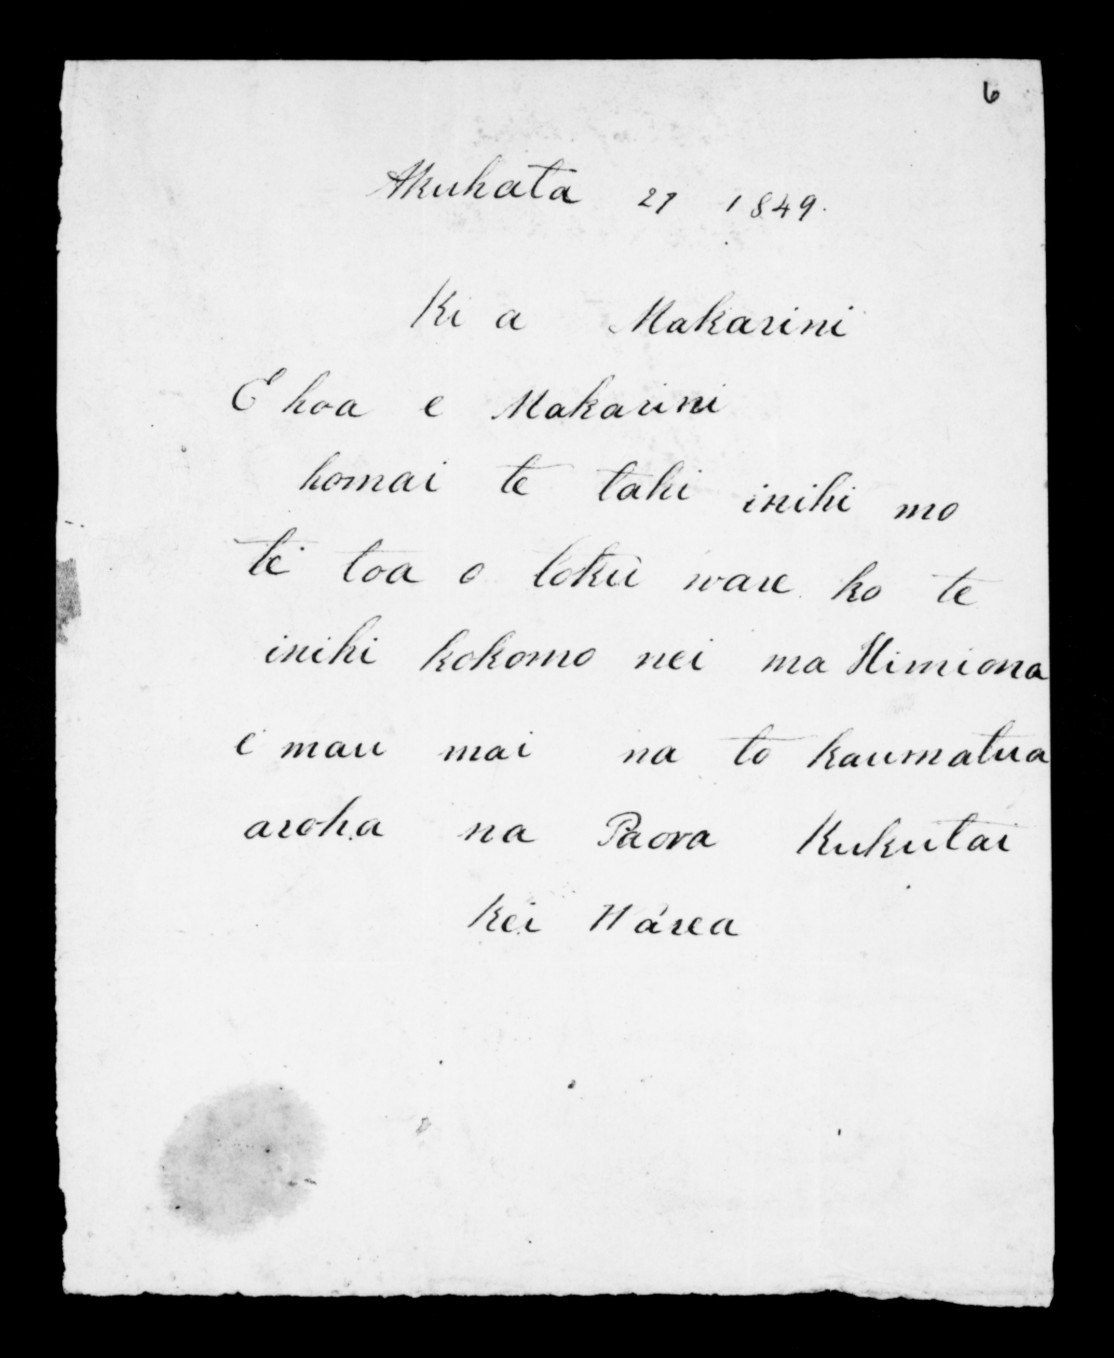 6
Akuhata 27 1849.
Ki a Makarini
E hoa e Makarini
homai te tahi inihi mo
te toa o toku ware ko te
inihi kokomo nei ma Himiona
e mau mai na to kaumatua
aroha na Paora Kukutai
kei Harea